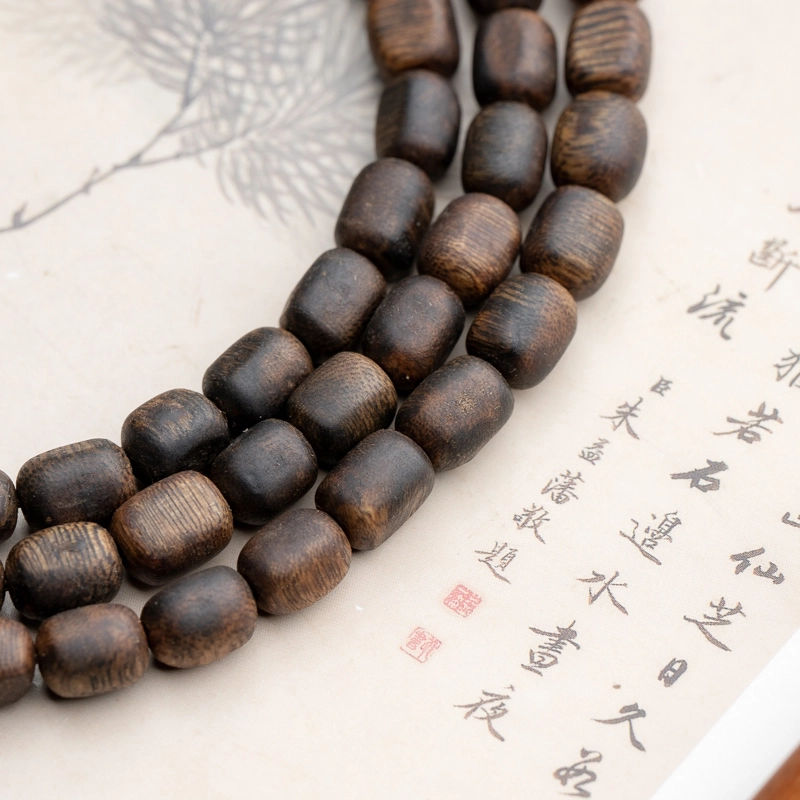 仙芝日久
若石邊水晝夜
斷流
臣朱益藩敬題